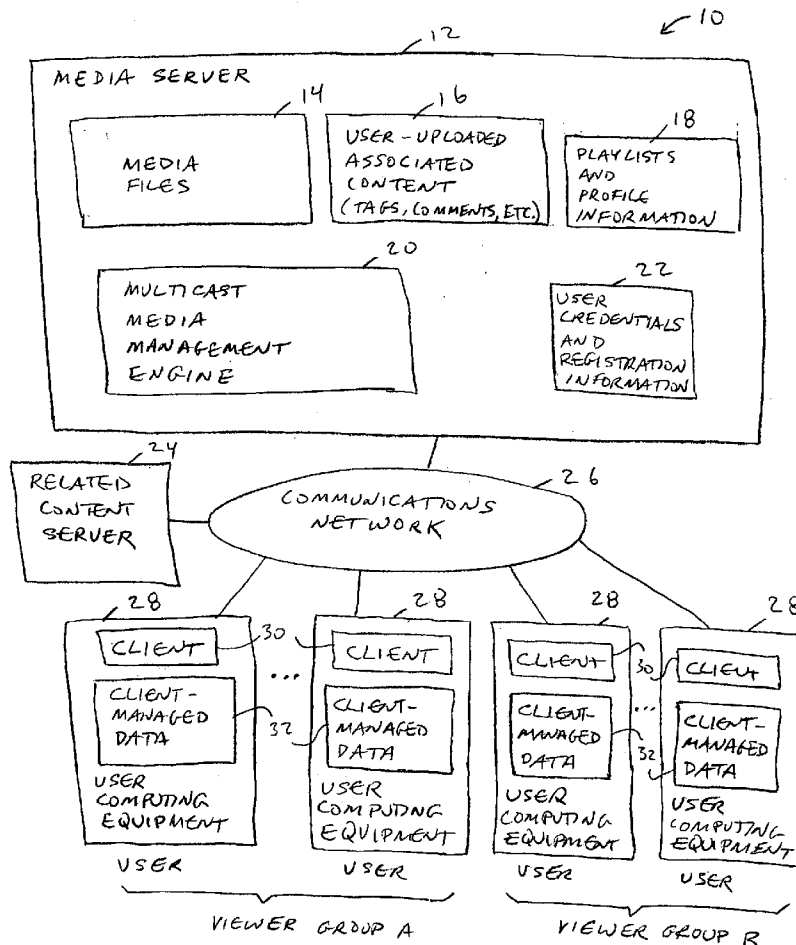 10
12
MEDIA SERVER
14
MEDIA
FILES
16
USER-UPLOADED
ASSOCIATED
CONTENT
(TAGS, COMMENTS, ETC.)
18
PLAYLISTS
AND
PROFILE
INFORMATION
20
MULTICAST
MEDIA
MANAGEMENT
ENGINE
22
USER
CREDENTIALS
AND
REGISTRATION
INFORMATION
24
RELATED
CONTENT
SERVER
26
COMMUNICATIONS
NETWORK
28
CLIENT
30
CLIENT-
MANAGED
DATA
32
USER
COMPUTING
EQUIPMENT
USER
...
28
CLIENT
CLIENT-
MANAGED
DATA
USER
COMPUTING
EQUIPMENT
USER
VIEWER GROUP A
28
CLIENT
30
CLIENT-
MANAGED
DATA
32
USER
COMPUTING
EQUIPMENT
USER
...
28
CLIENT
CLIENT-
MANAGED
DATA
USER
COMPUTING
EQUIPMENT
USER
VIEWER GROUP B